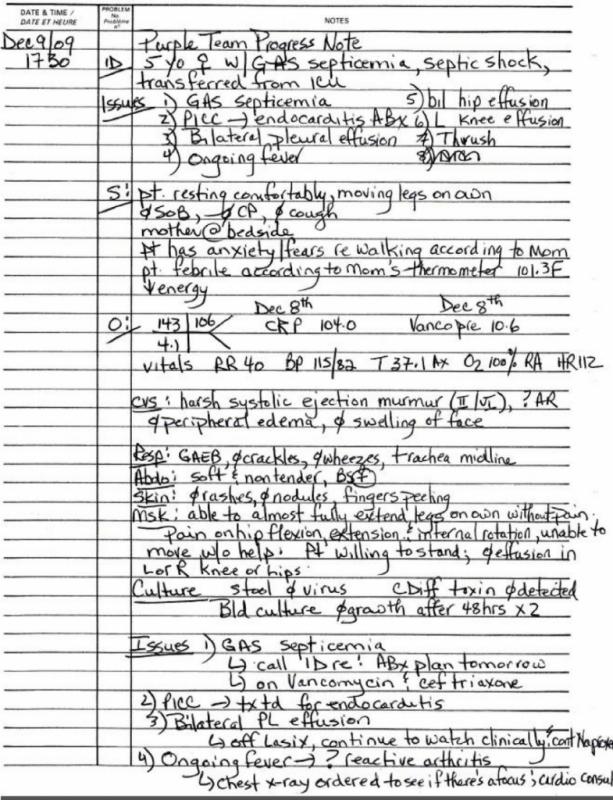 DATE & TIME / PROBLEM No. NOTES
DATE ET HEURE Problème n°
Dec 9/09 Purple Team Progress Note
1730 ID 5 yo ♀ w/ GAS septicemia, septic shock,
transferred from ICU
Issues 1) GAS septicemia 5) bil hip effusion
2) PICC → endocarditis ABx 6) L knee effusion
3) Bilateral pleural effusion 7) Thrush
4) Ongoing fever 8)
S: pt. resting comfortably, moving legs on own
∅ SOB, ∅ CP, ∅ cough
mother @ bedside
pt has anxiety/fears re walking according to Mom
pt. febrile according to Mom's thermometer 101.3F
↓ energy
Dec 8th Dec 8th
O: 143 | 106 CRP 104.0 Vanco pre 10.6
4.1
vitals RR 40 BP 115/82 T 37.1 Ax O2 100% RA HR 112
CVS: harsh systolic ejection murmur (II/VI), ? AR
∅ peripheral edema, ∅ swelling of face
Resp: GAEB, ∅ crackles, ∅ wheezes, trachea midline
Abdo: soft & nontender, BS⊕
Skin: ∅ rashes, ∅ nodules, fingers peeling
MSK: able to almost fully extend legs on own without pain.
Pain on hip flexion, extension & internal rotation, unable to
move w/o help. Pt willing to stand; ∅ effusion in
L or R knee or hips.
Culture stool ∅ virus CDiff toxin ∅ detected
Bld culture ∅ growth after 48hrs x 2
Issues 1) GAS septicemia
↳ call ID re: ABx plan tomorrow
↳ on Vancomycin & ceftriaxone
2) PICC → tx td for endocarditis
3) Bilateral PL effusion
↳ off Lasix, continue to watch clinically & cont
4) Ongoing fever → ? reactive arthritis
↳ chest x-ray ordered to see if there's a focus; cardio consul